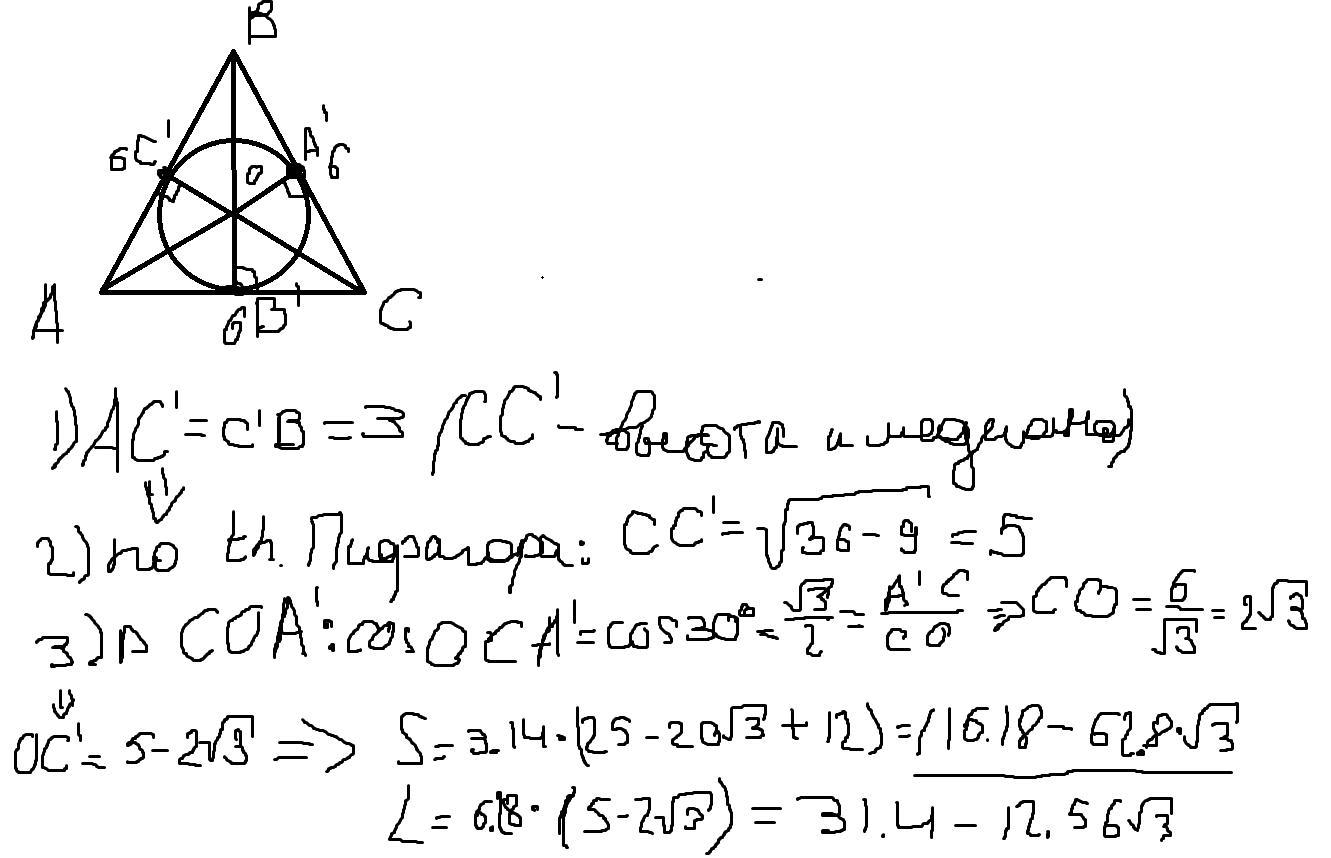 B
6 C' O A' 6
A 6 B' C
1) AC' = C'B = 3 (CC' - высота и медиана)
⇓
2) по th. Пифагора: CC' = √36-9 = 5
3) Δ COA': cos OCA' = cos 30° = √3/2 = A'C/CO ⇒ CO = 6/√3 = 2√3
⇓
OC' = 5-2√3 ⇒ S = 3.14·(25-20√3+12) = 116.18-62.8·√3
L = 6.28·(5-2√3) = 31.4-12.56√3